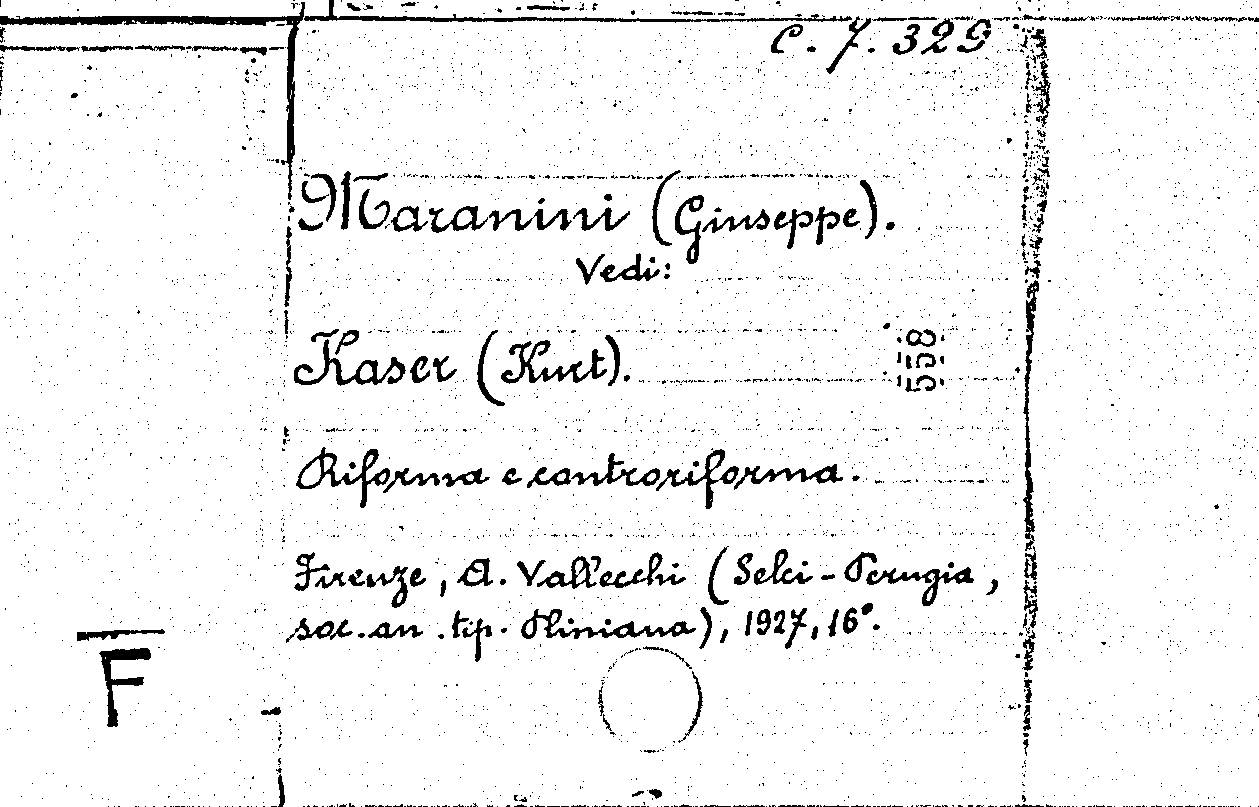 C. 7. 329
Maranini (Giuseppe).
Vedi:
Kaser (Kurt).
558
Riforma e controriforma.
Firenze, A. Vallecchi (Selci-Perugia,
soc. an. tip. Pliniana), 1927, 16°.
F